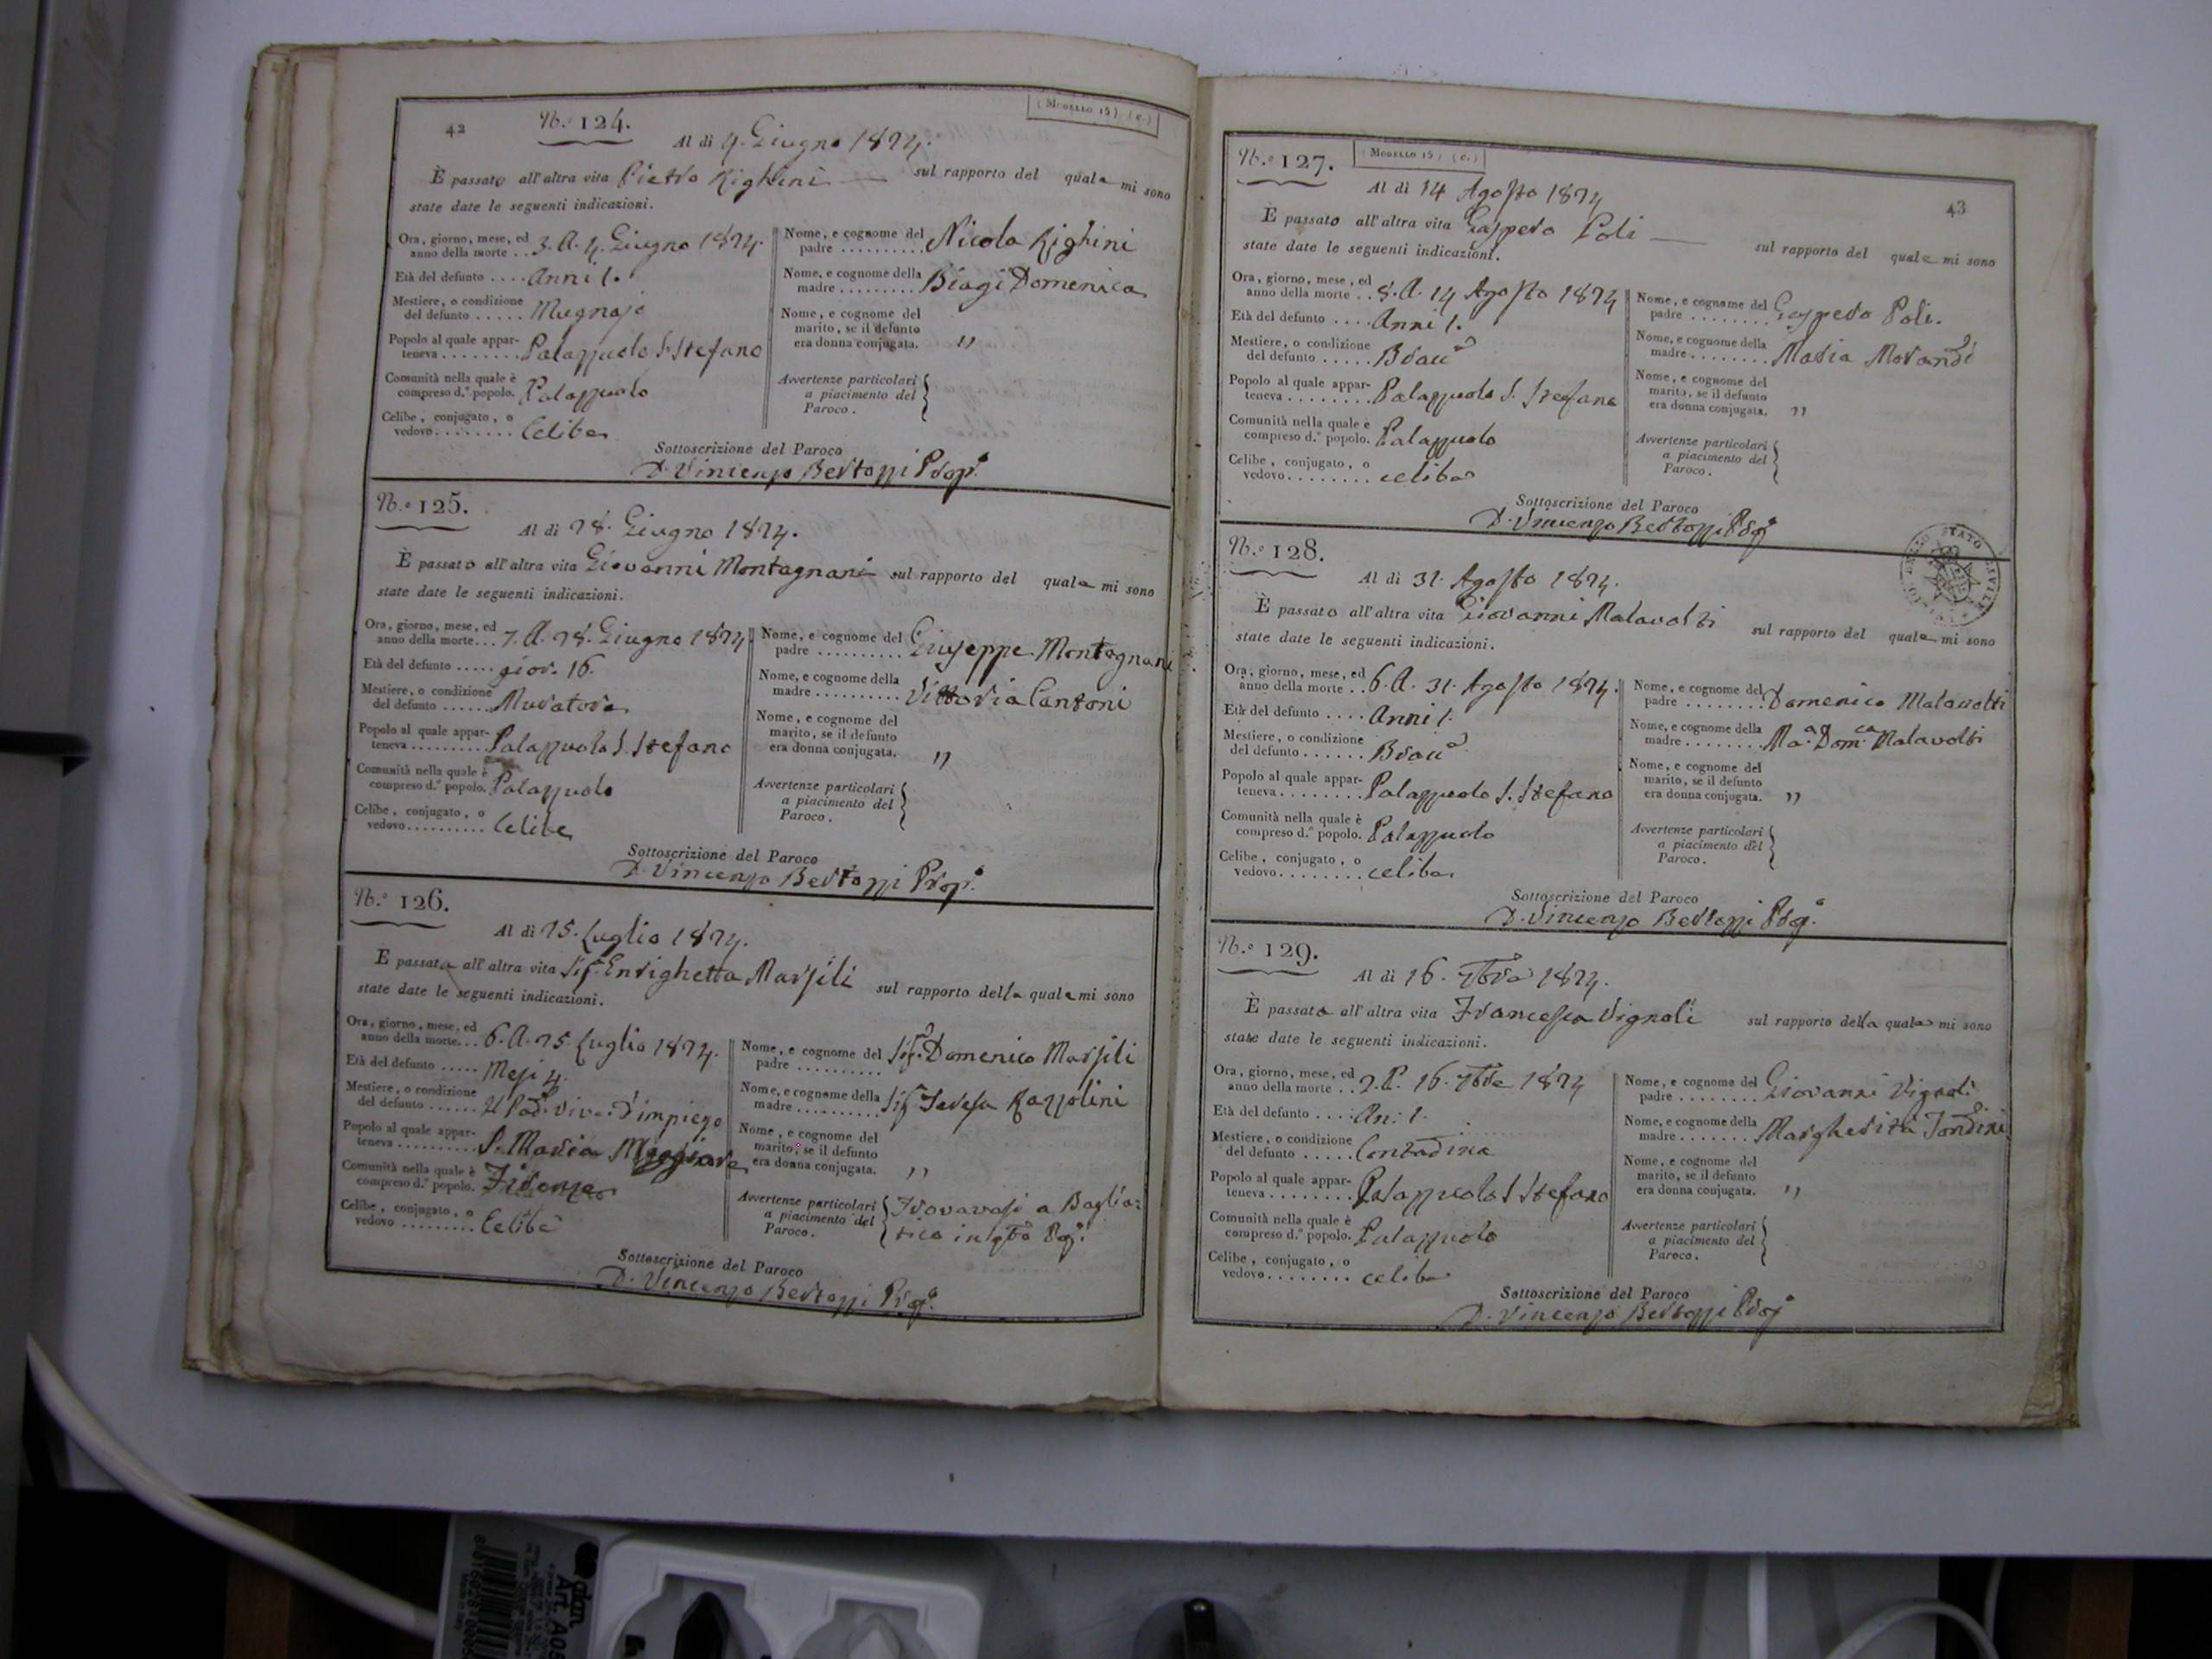 42
N.° 124.
(Modello 15) (c.)
Al dì 4. Giugno 1824.
È passato all'altra vita Pietro Righini sul rapporto del quale mi sono
state date le seguenti indicazioni.
Ora, giorno, mese, ed
anno della morte .. 3. A. 4. Giugno 1824.
Età del defunto .... Anni 1.
Mestiere, o condizione
del defunto ..... Mugnajo
Popolo al quale appar-
teneva ........ Palazzuolo S. Stefano
Comunità nella quale è
compreso d.° popolo. Palazzuolo
Celibe, conjugato, o
vedovo ........ Celibe
Nome, e cognome del
padre .......... Nicola Righini
Nome, e cognome della
madre ......... Biagi Domenica
Nome, e cognome del
marito, se il defunto
era donna conjugata. "
Avvertenze particolari
a piacimento del
Paroco.
Sottoscrizione del Paroco
D. Vincenzo Bertozzi Prop.°
N.° 125.
Al dì 28. Giugno 1824.
È passato all'altra vita Giovanni Montagnani sul rapporto del quale mi sono
state date le seguenti indicazioni.
Ora, giorno, mese, ed
anno della morte ... 7. A. 28. Giugno 1824
Età del defunto ..... gior. 16.
Mestiere, o condizione
del defunto ...... Muratore
Popolo al quale appar-
teneva .......... Palazzuolo S. Stefano
Comunità nella quale è
compreso d.° popolo. Palazzuolo
Celibe, conjugato, o
vedovo .......... Celibe
Nome, e cognome del
padre .......... Giuseppe Montagnani
Nome, e cognome della
madre .......... Vittoria Cantoni
Nome, e cognome del
marito, se il defunto
era donna conjugata. "
Avvertenze particolari
a piacimento del
Paroco.
Sottoscrizione del Paroco
D. Vincenzo Bertozzi Prop.°
N.° 126.
Al dì 25. Luglio 1824.
È passata all'altra vita Sig.ª Enrighetta Marsili sul rapporto della quale mi sono
state date le seguenti indicazioni.
Ora, giorno, mese, ed
anno della morte ... 6. A. 25. Luglio 1824.
Età del defunto ..... Mesi 4.
Mestiere, o condizione
del defunto ...... Il Pad. vive d'impiego
Popolo al quale appar-
teneva .......... S. Maria Maggiore
Comunità nella quale è
compreso d.° popolo. Firenze
Celibe, conjugato, o
vedovo ......... Celibe
Nome, e cognome del
padre .......... Sig. Domenico Marsili
Nome, e cognome della
madre .......... Sig. Teresa Razzolini
Nome, e cognome del
marito, se il defunto
era donna conjugata. "
Avvertenze particolari
a piacimento del
Paroco.
Trovavasi a Baglia:
tico in
Sottoscrizione del Paroco
D. Vincenzo Bertozzi Prop.°
N.° 127.
(Modello 15) (c.)
43
Al dì 14 Agosto 1824
È passato all'altra vita Gaspero Poli sul rapporto del quale mi sono
state date le seguenti indicazioni.
Ora, giorno, mese, ed
anno della morte .. 8. A. 14 Agosto 1824
Età del defunto .... Anni 1.
Mestiere, o condizione
del defunto .....
Popolo al quale appar-
teneva ........ Palazzuolo S. Stefano
Comunità nella quale è
compreso d.° popolo. Palazzuolo
Celibe, conjugato, o
vedovo ........ celibe
Nome, e cognome del
padre ........ Gaspero Poli.
Nome, e cognome della
madre ........ Maria Morandi
Nome, e cognome del
marito, se il defunto
era donna conjugata. "
Avvertenze particolari
a piacimento del
Paroco.
Sottoscrizione del Paroco
D. Vincenzo Bertozzi Prop.°
N.° 128.
Al dì 31. Agosto 1824.
È passato all'altra vita Giovanni Malavolti sul rapporto del quale mi sono
state date le seguenti indicazioni.
Ora, giorno, mese, ed
anno della morte .. 6. A. 31. Agosto 1824.
Età del defunto .... Anni 1.
Mestiere, o condizione
del defunto ......
Popolo al quale appar-
teneva ........ Palazzuolo S. Stefano
Comunità nella quale è
compreso d.° popolo. Palazzuolo
Celibe, conjugato, o
vedovo ........ celibe
Nome, e cognome del
padre ........ Domenico Malavolti
Nome, e cognome della
madre ........ Ma. Dom.ca Malavolti
Nome, e cognome del
marito, se il defunto
era donna conjugata. "
Avvertenze particolari
a piacimento del
Paroco.
Sottoscrizione del Paroco
D. Vincenzo Bertozzi Prop.°
N.° 129.
Al dì 16. 7bre 1824.
È passata all'altra vita Francesca Vignoli sul rapporto della quale mi sono
state date le seguenti indicazioni.
Ora, giorno, mese, ed
anno della morte .. 2. P. 16. 7bre 1824
Età del defunto .... An: 1.
Mestiere, o condizione
del defunto ..... Contadina
Popolo al quale appar-
teneva ........ Palazzuolo S Stefano
Comunità nella quale è
compreso d.° popolo. Palazzuolo
Celibe, conjugato, o
vedovo ........ celibe
Nome, e cognome del
padre ........ Giovanni Vignoli
Nome, e cognome della
madre ....... Margherita Tondini
Nome, e cognome del
marito, se il defunto
era donna conjugata. "
Avvertenze particolari
a piacimento del
Paroco.
Sottoscrizione del Paroco
D. Vincenzo Bertozzi Prop.°